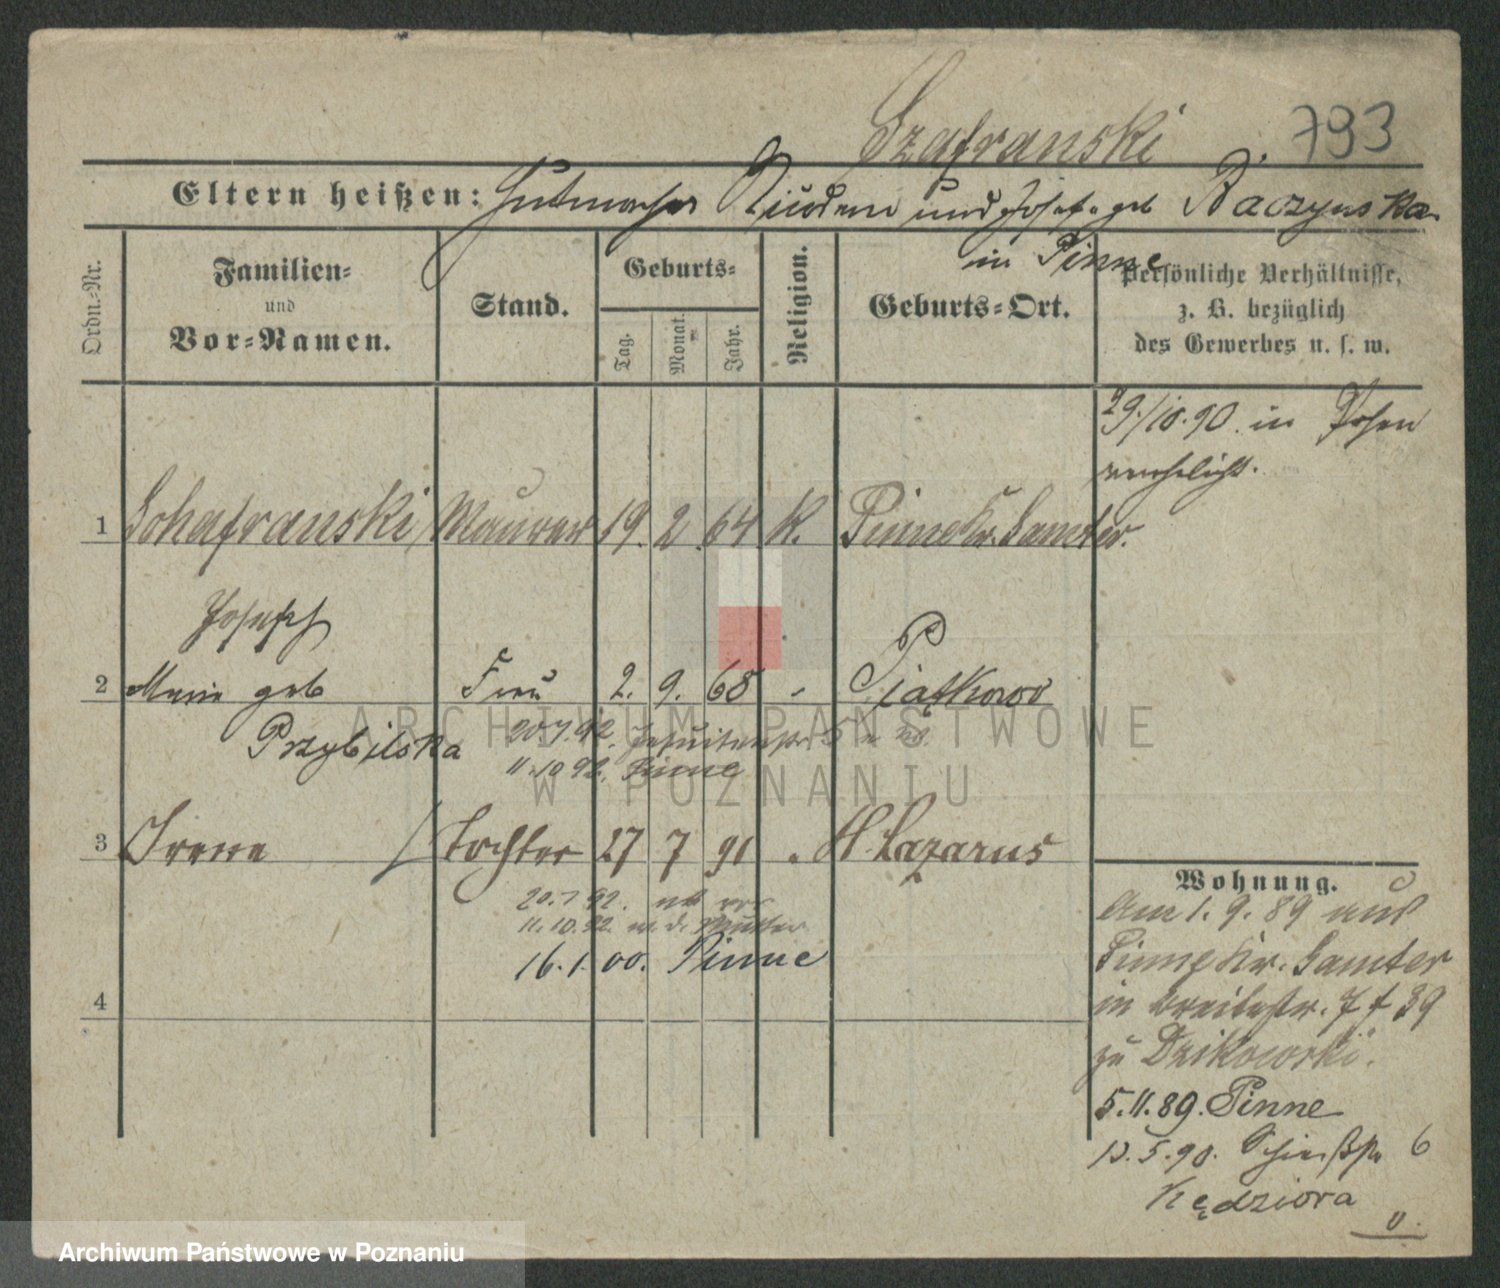 Szafranski 793
Eltern heißen: Hutmacher Nicodem und Josefa geb Raczynska
in Pinne
Ordn.-Nr.
Familien-
und
Vor-Namen.
Stand.
Geburts-
Tag.
Monat.
Jahr.
Religion.
Geburts-Ort.
Persönliche Verhältnisse,
z. B. bezüglich
des Gewerbes u. s. w.
29./10.90. in Posen
verehelicht.
1 Schafranski, Maurer 19. 2. 64 K. Pinne Kr. Samter.
Joseph
2 Marie geb Frau 2. 9. 68 Piątkowo
Przybilska
20.7.92. Jesuitenstr 5
11.10.92. Pinne
3 Irene Tochter 27 7 91 St Lazarus
20.7.92.
11.10.92. m. d. Mutter
16.1.00. Pinne
4
Wohnung.
Am 1. 9. 89 aus
Pinne Kr. Samter
in Breitestr. 7 39
zu Dzikowski.
5.11.89. Pinne
13.5.90. 6
Kędziora
ARCHIWUM PAŃSTWOWE
W POZNANIU
Archiwum Państwowe w Poznaniu